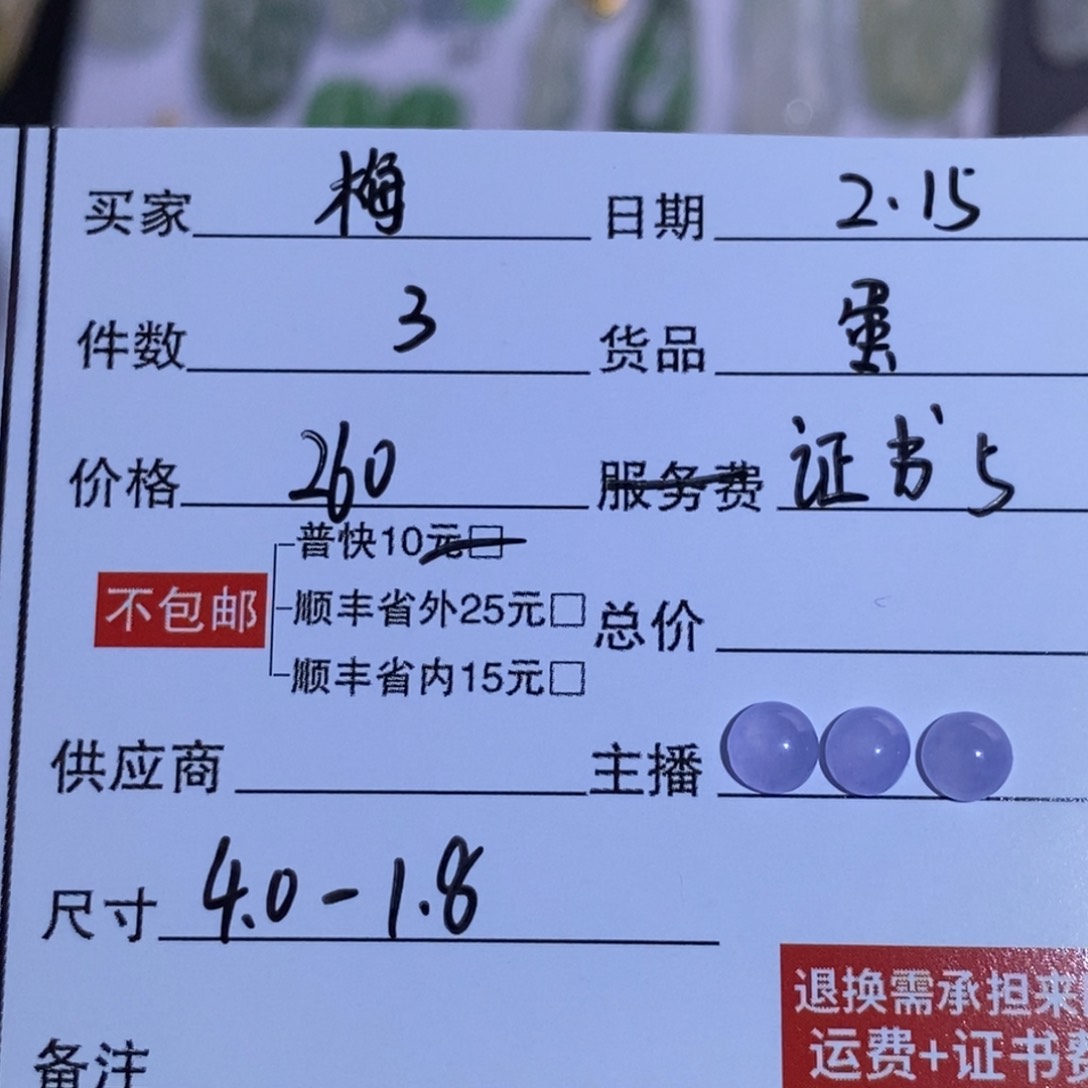 买家 梅 日期 2.15
件数 3 货品 蛋
价格 260 服务费 证书5
普快10元□
不包邮 顺丰省外25元□ 总价
顺丰省内15元□
供应商 主播
尺寸 4.0-1.8
退换需承担来
备注 运费+证书费